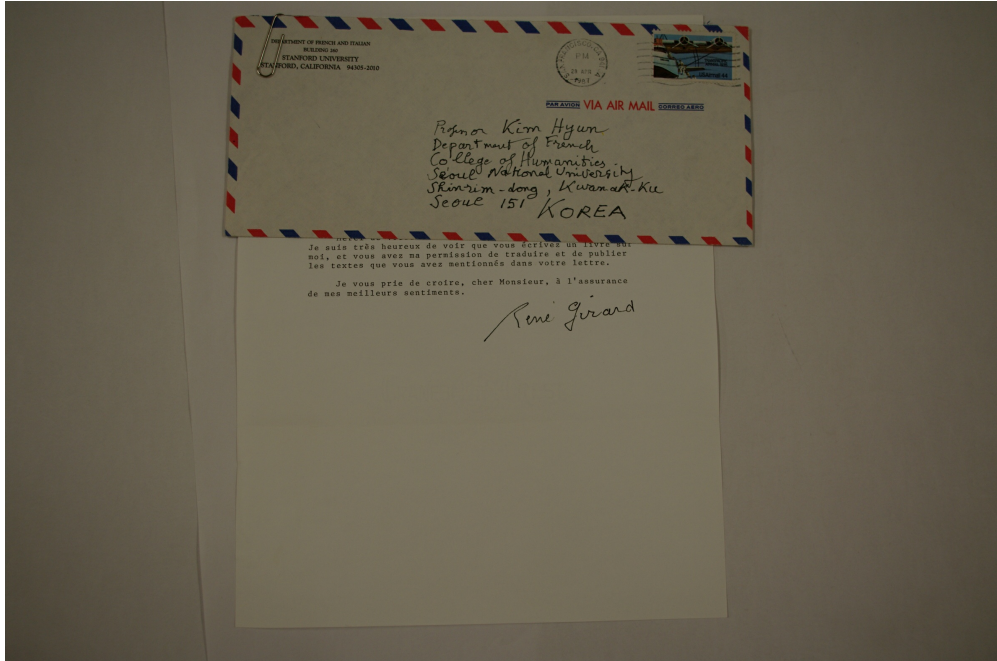 DEPARTMENT OF FRENCH AND ITALIAN
BUILDING 260
STANFORD UNIVERSITY
STANFORD, CALIFORNIA 94305-2010
PM
1987
PAR AVION VIA AIR MAIL CORREO AEREO
Professor Kim Hyun
Department of French
College of Humanities
Séoul National University
Shinrim-dong, Kwanak-Ku
Seoul 151 KOREA
Je suis très heureux de voir que vous écrivez un livre sur
moi, et vous avez ma permission de traduire et de publier
les textes que vous avez mentionnés dans votre lettre.
Je vous prie de croire, cher Monsieur, à l'assurance
de mes meilleurs sentiments.
René Girard